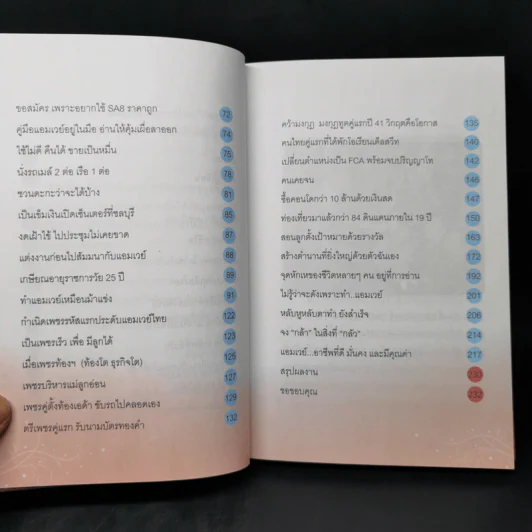 ขอสมัคร เพราะอยากใช้ SA8 ราคาถูก 72
คู่มือแอมเวย์อยู่ในมือ อ่านให้คุ้มเผื่อสาออก 74
ใช้ไม่ดี คืนได้ ขายเป็นหมื่น 75
นั่งรถเมล์ 2 ต่อ เรือ 1 ต่อ 78
ชวนดะกะว่าจะได้บ้าง 81
เป็นเข็มเงินเปิดเซ็นเตอร์ที่ชลบุรี 85
งดเฝ้าไข้ ไปประชุมไม่เคยขาด 87
แต่งงานก่อนไปสัมมนากับแอมเวย์ 88
เกษียณอายุราชการวัย 25 ปี 89
ทำแอมเวย์เหมือนม้าแข่ง 91
กำเนิดเพชรรหัสแรกประดับแอมเวย์ไทย 122
เป็นเพชรเร็ว เพื่อ มีลูกได้ 123
เมื่อเพชรท้องฯ (ท้องโต ธุรกิจโต) 125
เพชรบริหารแม่ลูกอ่อน 127
เพชรคู่ตั้งท้องเอด้า ขับรถไปคลอดเอง 129
ตรีเพชรคู่แรก รับนามบัตรทองคำ 132
คว้ามงกุฎ มงกุฎทูตคู่แรกปี 41 วิกฤตคือโอกาส 135
คนไทยคู่แรกที่ได้พักโอเรียนเต็ลสวีท 140
เปลี่ยนตำแหน่งเป็น FCA พร้อมจบปริญญาโท 143
คนเคยจน 146
ซื้อคอนโดกว่า 10 ล้านด้วยเงินสด 147
ท่องเที่ยวมาแล้วกว่า 84 ดินแดนภายใน 19 ปี 150
สอนลูกตั้งเป้าหมายด้วยรางวัล 163
สร้างตำนานที่ยิ่งใหญ่ด้วยตัวฉันเอง 172
จุดหักเหของชีวิตหลายๆ คน อยู่ที่การอ่าน 192
ไม่รู้ว่าจะดังเพราะทำ..แอมเวย์ 201
หลับหูหลับตาทำ ยังสำเร็จ 206
จง "กล้า" ในสิ่งที่ "กลัว" 214
แอมเวย์...อาชีพที่ดี มั่นคง และมีคุณค่า 217
สรุปผลงาน 230
ขอขอบคุณ 232